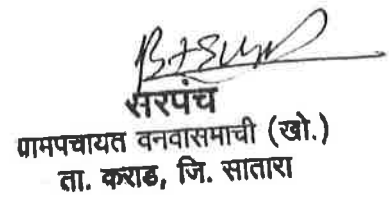 सरपंच
ग्रामपंचायत वनवासमाची (खो.)
ता. कराड, जि. सातारा